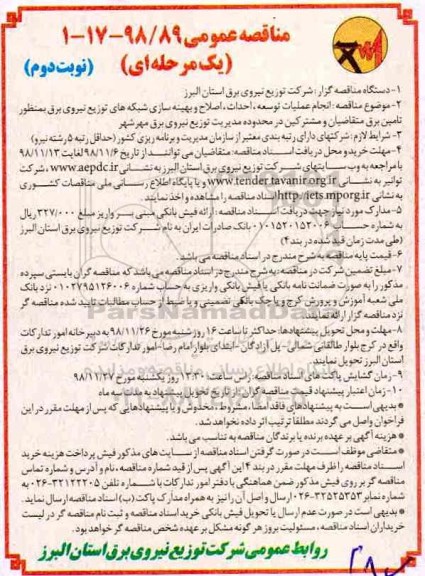 مناقصه عمومی ۹۸/۸۹-۱۷-۱
(یک مرحله ای)
(نوبت دوم)
۱- دستگاه مناقصه گزار : شرکت توزیع نیروی برق استان البرز
۲- موضوع مناقصه : انجام عملیات توسعه ، احداث ، اصلاح و بهینه سازی شبکه های توزیع نیروی برق بمنظور
تامین برق متقاضیان و مشترکین در محدوده مدیریت توزیع نیروی برق مهرشهر
۳- شرایط لازم : شرکتهای دارای رتبه بندی معتبر از سازمان مدیریت و برنامه ریزی کشور (حداقل رتبه ۵ رشته نیرو)
۴- مهلت خرید و محل دریافت اسناد مناقصه: متقاضیان می توانند از تاریخ ۹۸/۱۱/۶ لغایت ۹۸/۱۱/۱۳
با مراجعه به وب سایتهای شرکت توزیع نیروی برق استان البرز به نشانی www.aepdc.ir ، شرکت
توانیر به نشانی www.tender.tavanir.org.ir و یا پایگاه اطلاع رسانی ملی مناقصات کشوری
به نشانی http://iets.mporg.ir اسناد مناقصه را مشاهده و اخذ نمایند .
۵- مدارک مورد نیاز جهت دریافت اسناد مناقصه : ارائه فیش بانکی مبنی بر واریز مبلغ ۳۲۷/۰۰۰ ریال
به شماره حساب ۰۱۰۱۵۲۰۱۵۳۰۰۶ بانک صادرات ایران به نام شرکت توزیع نیروی برق استان البرز
(طی مدت زمان قید شده در بند ۴)
۶- قیمت پایه مناقصه به شرح مندرج در اسناد مناقصه می باشد.
۷- مبلغ تضمین شرکت در مناقصه، به شرح مندرج در اسناد مناقصه می باشد که مناقصه گران بایستی سپرده
مذکور را به صورت ضمانت نامه بانکی یا فیش بانکی واریزی به حساب شماره ۰۱۰۲۷۹۵۱۲۶۰۰۶ نزد بانک
ملی شعبه آموزش و پرورش کرج و یا چک بانکی تضمینی و یا ضبط از حساب مطالبات تایید شده مناقصه گر
نزد مناقصه گزار ارائه نمایند.
۸- مهلت و محل تحویل پیشنهادها: حداکثر تا ساعت ۱۶ روز شنبه مورخ ۹۸/۱۱/۲۶ به دبیرخانه امور تدارکات
واقع در کرج بلوار طالقانی شمالی- پل آزادگان- ابتدای بلوار امام رضا- امور تدارکات شرکت توزیع نیروی برق
استان البرز تحویل نمایند.
۹- زمان گشایش پاکت های اسناد مناقصه : راس ساعت ۱۳:۳۰ روز یکشنبه مورخ ۹۸/۱۱/۲۷
۱۰- زمان اعتبار پیشنهاد قیمت مناقصه گران : از تاریخ تحویل پیشنهاد به مدت سه ماه
* بدیهی است به پیشنهادهای فاقد امضا ، مشروط ، مخدوش و یا پیشنهادهایی که پس از مهلت مقرر در این
فراخوان واصل می گردند مطلقا ترتیب اثر داده نخواهد شد.
* هزینه آگهی بر عهده برنده یا برندگان مناقصه به تناسب می باشد.
* متقاضی موظف است در صورت گرفتن اسناد مناقصه از سایت های مذکور فیش پرداخت هزینه خرید
اسناد مناقصه را ظرف مهلت مقرر در بند ۴ این آگهی پس از قید شماره مناقصه ، نام و آدرس و شماره تماس
مناقصه گر بر روی فیش مذکور ضمن هماهنگی با دفتر امور تدارکات با شماره تلفن ۳۲۱۲۲۲۰۵-۰۲۶ به
شماره نمابر ۳۲۵۲۵۳۵۳-۰۲۶ ارسال و اصل آن را نیز به همراه مدارک پاکت (ب) اسناد مناقصه ارسال نماید.
* بدیهی است در صورت عدم ارسال یا تحویل فیش بانکی خرید اسناد مناقصه و ثبت نام مناقصه گر در لیست
خریداران اسناد مناقصه ، مسئولیت بروز هر گونه مشکل بر عهده شخص مناقصه گر خواهد بود.
روابط عمومی شرکت توزیع نیروی برق استان البرز